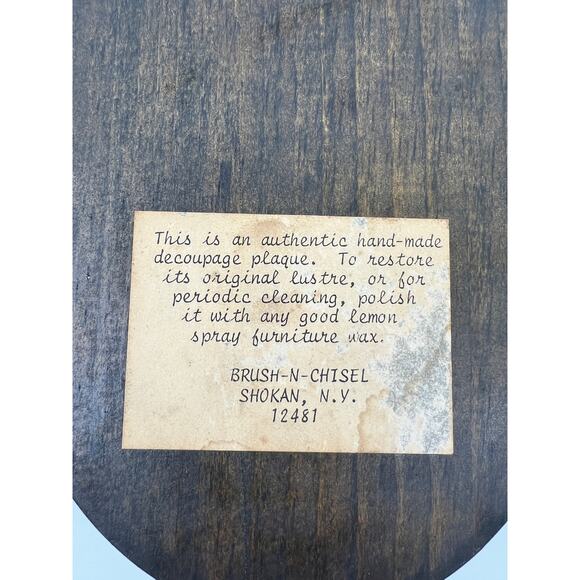 This is an authentic hand-made
decoupage plaque. To restore
its original lustre, or for
periodic cleaning, polish
it with any good lemon
spray furniture wax.
BRUSH-N-CHISEL
SHOKAN, N.Y.
12481